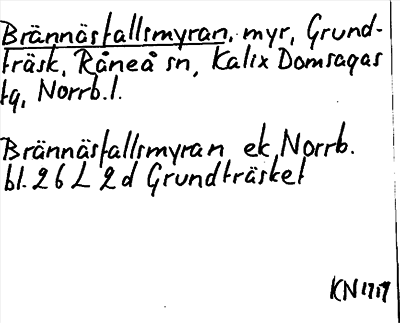 Brännästallsmyran, myr, Grund-
träsk, Råneå sn, Kalix Domsagas
tg, Norrb.l.
Brännästallsmyran ek Norrb.
bl. 26 L 2d Grundträsket
KN